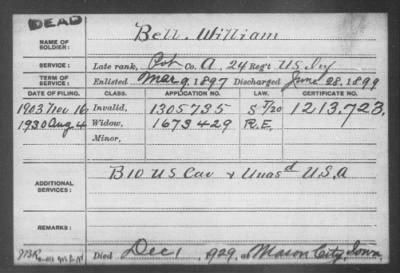 DEAD
NAME OF SOLDIER: Bell, William
SERVICE: Late rank, Pvt Co. A, 24 Regt US Inf
TERM OF SERVICE: Enlisted Mar 9, 1897 Discharged June 28, 1899
DATE OF FILING. CLASS. APPLICATION NO. LAW. CERTIFICATE NO.
1903 Nov 16 Invalid, 1305735 1213.723
1930 Aug 4 Widow, 1673429 R.E.
Minor,
ADDITIONAL SERVICES: B 10 US Cav & Unasd U.S.A
REMARKS:
Died Dec 1, 1929, at Mason City, Iowa